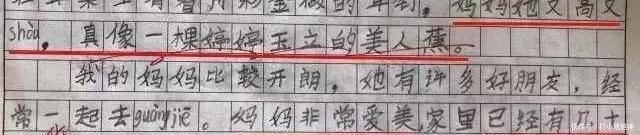 妈妈她又高又
shòu，真像一棵婷婷玉立的美人蕉。
我的妈妈比较开朗，她有许多好朋友，经
常一起去guàngjiē。妈妈非常爱美，家里已经有几十